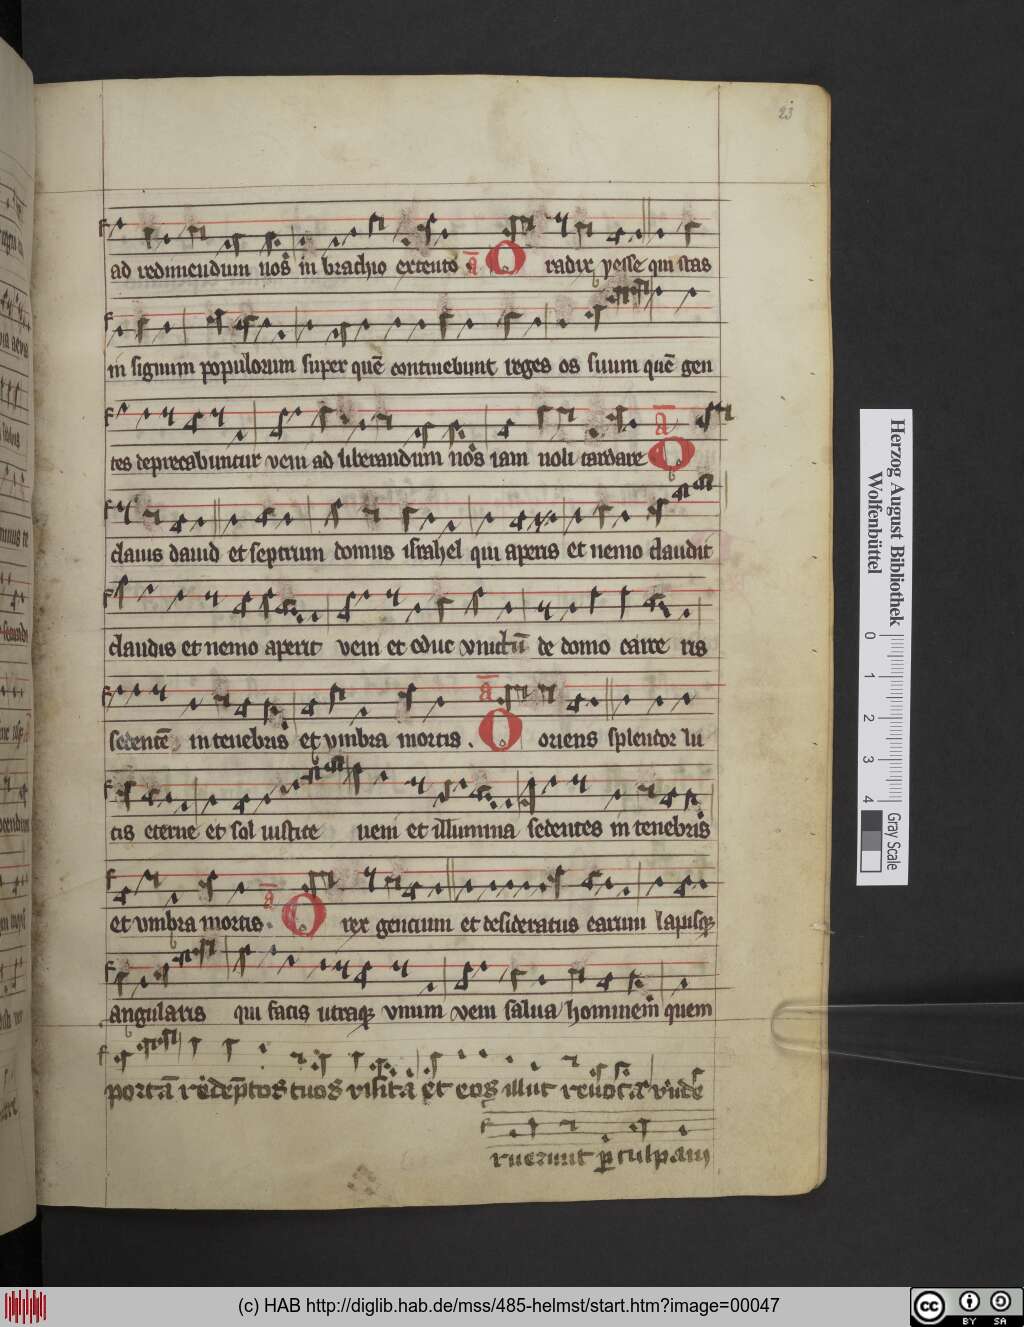 23
ad redimendum nos̄ in brachio extento a O radix yesse qui stas
in signum populorum super quē continebunt reges os suum quē gen
tes deprecabuntur veni ad liberandum nos̄ iam noli tardare a O
clauis dauid et septrum domus israhel qui aperis et nemo claudit
claudis et nemo aperit veni et educ vinctū de domo carce ris
sedentē in tenebris et vmbra mortis . a O oriens splendor lu
cis eterne et sol iusticie ueni et illumina sedentes in tenebris
et vmbra mortis . a O rex gencium et desideratus earum lapisqꝫ
angularis qui facis utraqꝫ vnum veni salua hominem quem
portā redēptos tuos visitā et eos illuc reuocā vnde
ruerunt ꝑ culpam
Herzog August Bibliothek
Wolfenbüttel
0 1 2 3 4
Gray Scale
(c) HAB http://diglib.hab.de/mss/485-helmst/start.htm?image=00047
cc BY SA